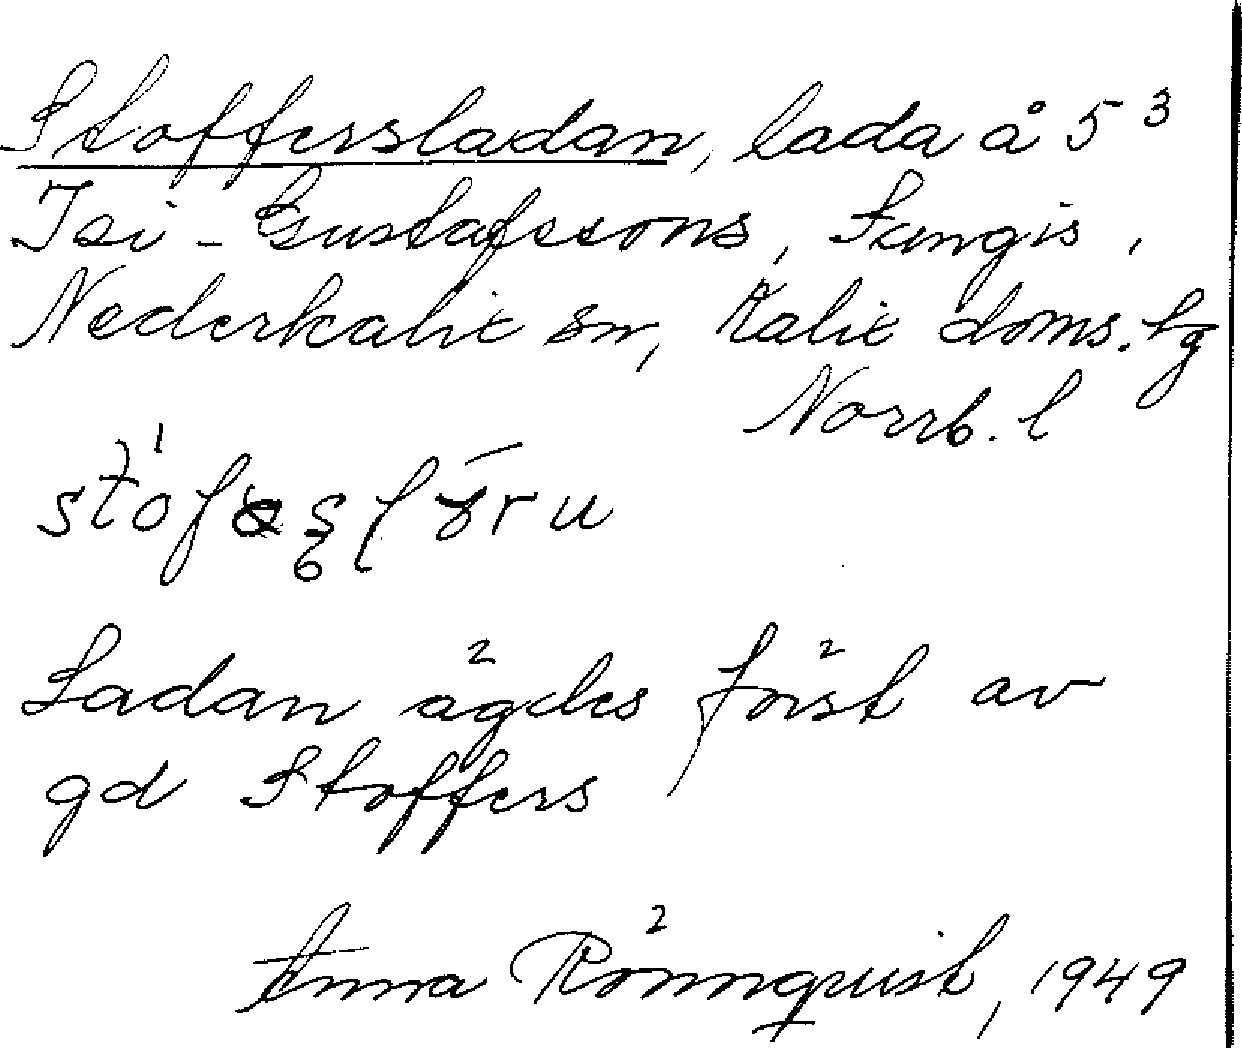 Stoffersladan, lada å 5³
Isi-Gustafssons, Sangis,
Nederkalix sn, Kalix doms. tg
Norrb. l
Ladan ägdes först av
gd Stoffers
Anna Rönnquist, 1949